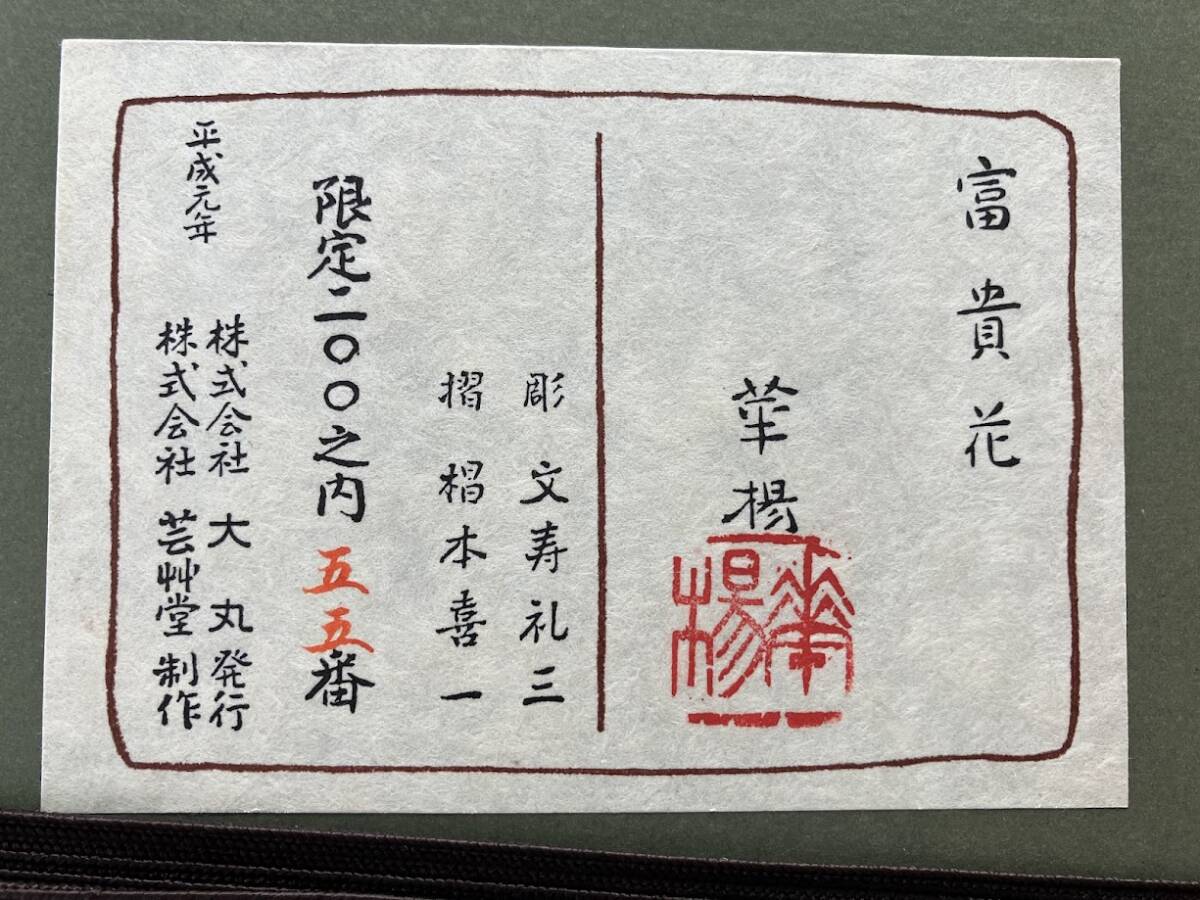 富貴花
華楊
華楊
彫 文寿礼三
摺 椙本喜一
限定二〇〇之内 五五番
株式会社 大丸 発行
株式会社 芸艸堂 制作
平成元年